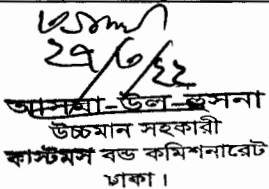 ২৭/৩/২২
আসমা-উল-হুসনা
উচ্চমান সহকারী
কাস্টমস বন্ড কমিশনারেট
ঢাকা।